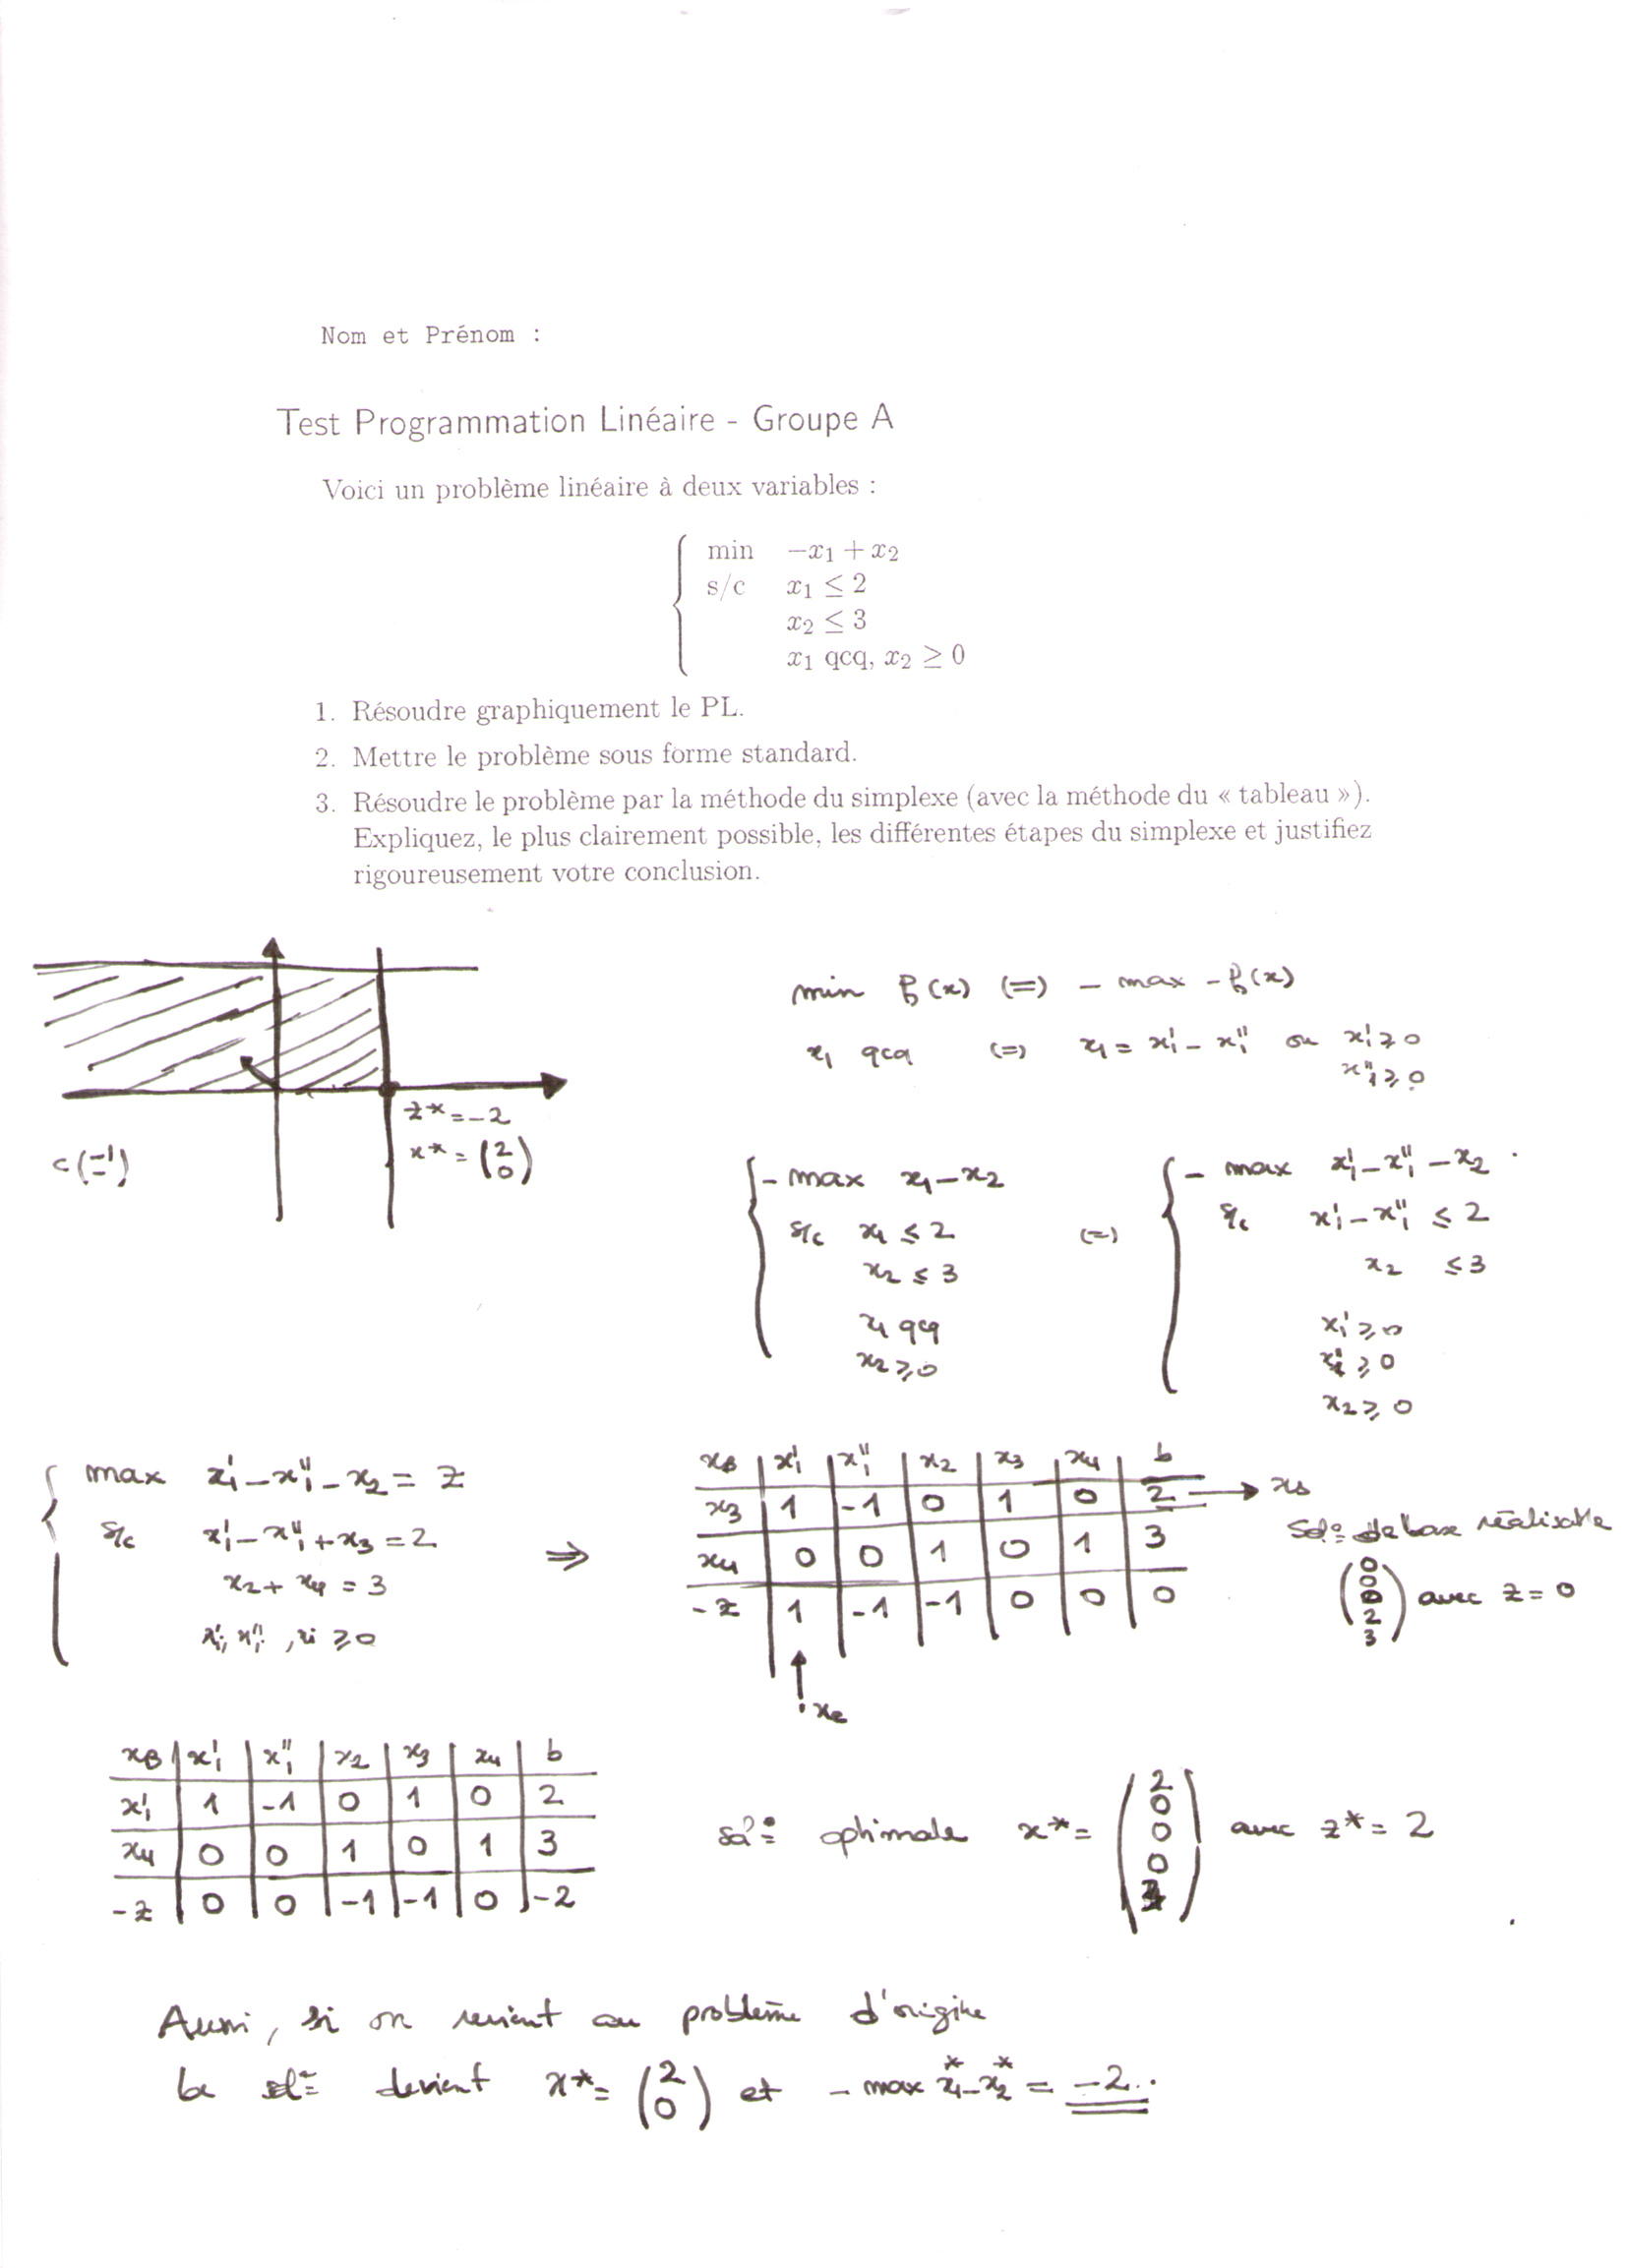 Nom et Prénom :
Test Programmation Linéaire - Groupe A
Voici un problème linéaire à deux variables :
min −x₁ + x₂
s/c x₁ ≤ 2
x₂ ≤ 3
x₁ qcq, x₂ ≥ 0
1. Résoudre graphiquement le PL.
2. Mettre le problème sous forme standard.
3. Résoudre le problème par la méthode du simplexe (avec la méthode du « tableau »).
Expliquez, le plus clairement possible, les différentes étapes du simplexe et justifiez
rigoureusement votre conclusion.
z* = -2
x* = (2 0)
min f(x) (=) - max - f(x)
x₁ qcq (=) x₁ = x₁' - x₁'' ou x₁' ≥ 0
x₁'' ≥ 0
- max x₁ - x₂
s/c x₁ ≤ 2
x₂ ≤ 3
x₁ qcq
x₂ ≥ 0
(=)
- max x₁' - x₁'' - x₂
s/c x₁' - x₁'' ≤ 2
x₂ ≤ 3
x₁' ≥ 0
≥ 0
x₂ ≥ 0
max x₁' - x₁'' - x₂ = z
s/c x₁' - x₁'' + x₃ = 2
x₂ + x₄ = 3
x₁', x₁'', xi ≥ 0
⇒
xB | x₁' | x₁'' | x₂ | x₃ | x₄ | b
x₃ | 1 | -1 | 0 | 1 | 0 | 2 → xs
x₄ | 0 | 0 | 1 | 0 | 1 | 3
-z | 1 | -1 | -1 | 0 | 0 | 0
xe
sol° de base réalisable
(0 0 0 2 3) avec z = 0
xB | x₁' | x₁'' | x₂ | x₃ | x₄ | b
x₁' | 1 | -1 | 0 | 1 | 0 | 2
x₄ | 0 | 0 | 1 | 0 | 1 | 3
-z | 0 | 0 | -1 | -1 | 0 | -2
sol° optimale x* = (2 0 0 0 3) avec z* = 2
Aussi, si on revient au problème d'origine
la sol° devient x* = (2 0) et - max x₁* - x₂* = -2